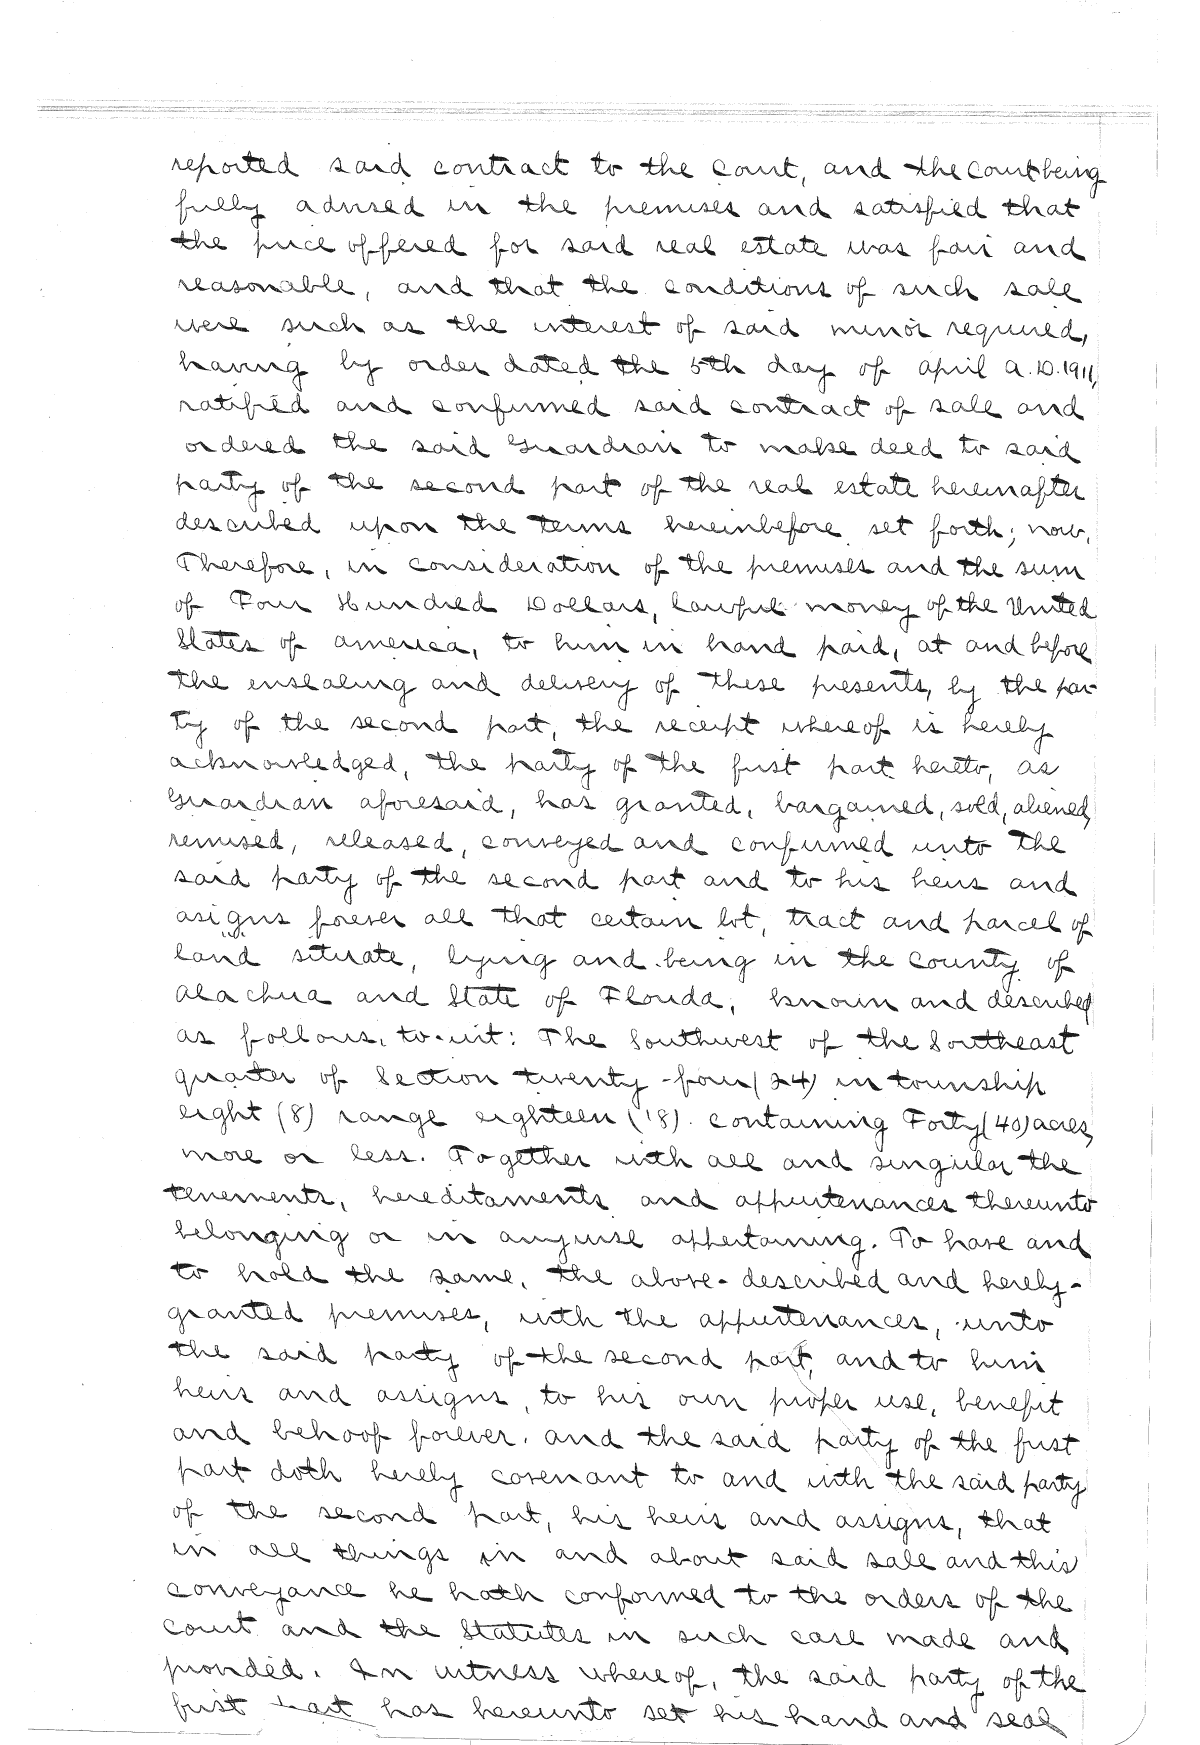 reported said contract to the Court, and the Court being
fully advised in the premises and satisfied that
the price offered for said real estate was fair and
reasonable, and that the conditions of such sale
were such as the interest of said minor required,
having by order dated the 5th day of april a.D.1911,
ratified and confirmed said contract of sale and
ordered the said Guardian to make deed to said
party of the second part of the real estate hereinafter
described upon the terms hereinbefore set forth; now,
Therefore, in consideration of the premises and the sum
of Four Hundred Dollars, lawful money of the United
States of america, to him in hand paid, at and before
the ensealing and delivery of these presents, by the par-
ty of the second part, the receipt whereof is hereby
acknowledged, the party of the first part hereto, as
Guardian aforesaid, has granted, bargained, sold, aliened,
remised, released, conveyed and confirmed unto the
said party of the second part and to his heirs and
asigns forever all that certain lot, tract and parcel of
land situate, lying and being in the County of
alachua and State of Florida, known and described
as follows, to-wit: The Southwest of the Southeast
quarter of Section twenty-four (24) in township
eight (8) range eighteen (18). containing Forty (40) acres,
more or less. Together with all and singular the
tenements, hereditaments and appurtenances thereunto
belonging or in anywise appertaining. To have and
to hold the same, the above-described and hereby-
granted premises, with the appurtenances, unto
the said party of the second part, and to him
heirs and assigns, to his own proper use, benefit
and behoof forever. and the said party of the first
part doth hereby covenant to and with the said party
of the second part, his heirs and assigns, that
in all things in and about said sale and this
conveyance he hath conformed to the orders of the
court and the Statutes in such case made and
provided. In witness whereof, the said party of the
first part has hereunto set his hand and seal